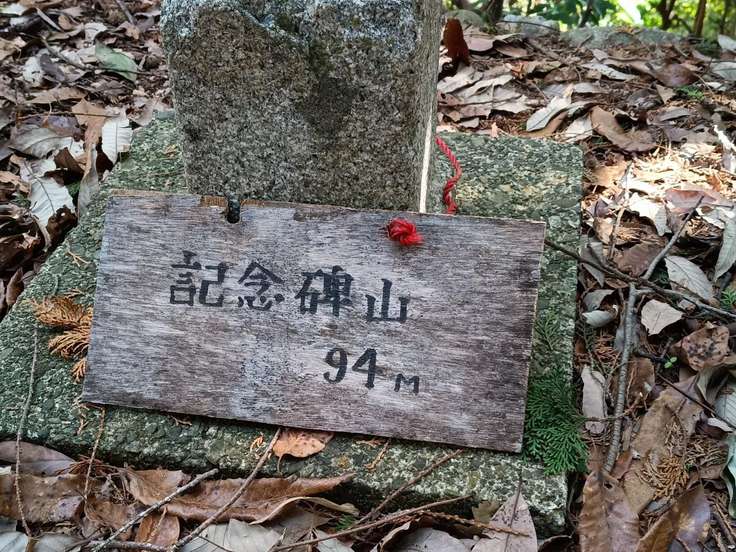 記念碑山
94M